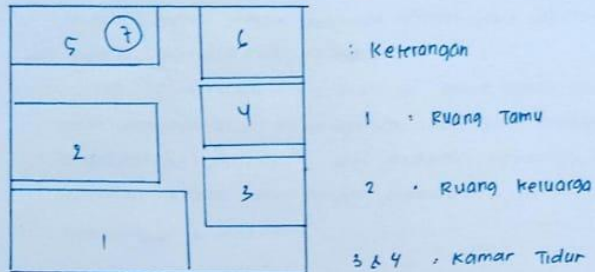 5 7 6
: Keterangan
4
1 : Ruang Tamu
2
2 . Ruang Keluarga
3
1
3 & 4 , Kamar Tidur